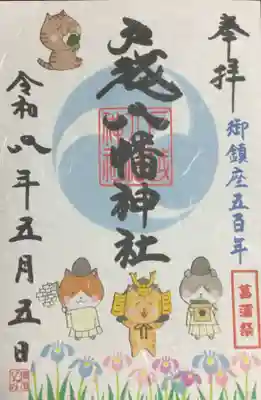 奉拝
御鎮座五百年
菖蒲祭
戸越八幡神社
令和八年五月五日